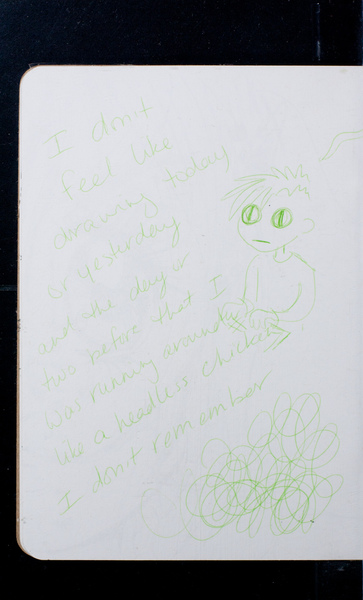 I don't
feel like
drawing today
or yesterday
and the day or
two before that I
was running around
like a headless chicken
I don't remember